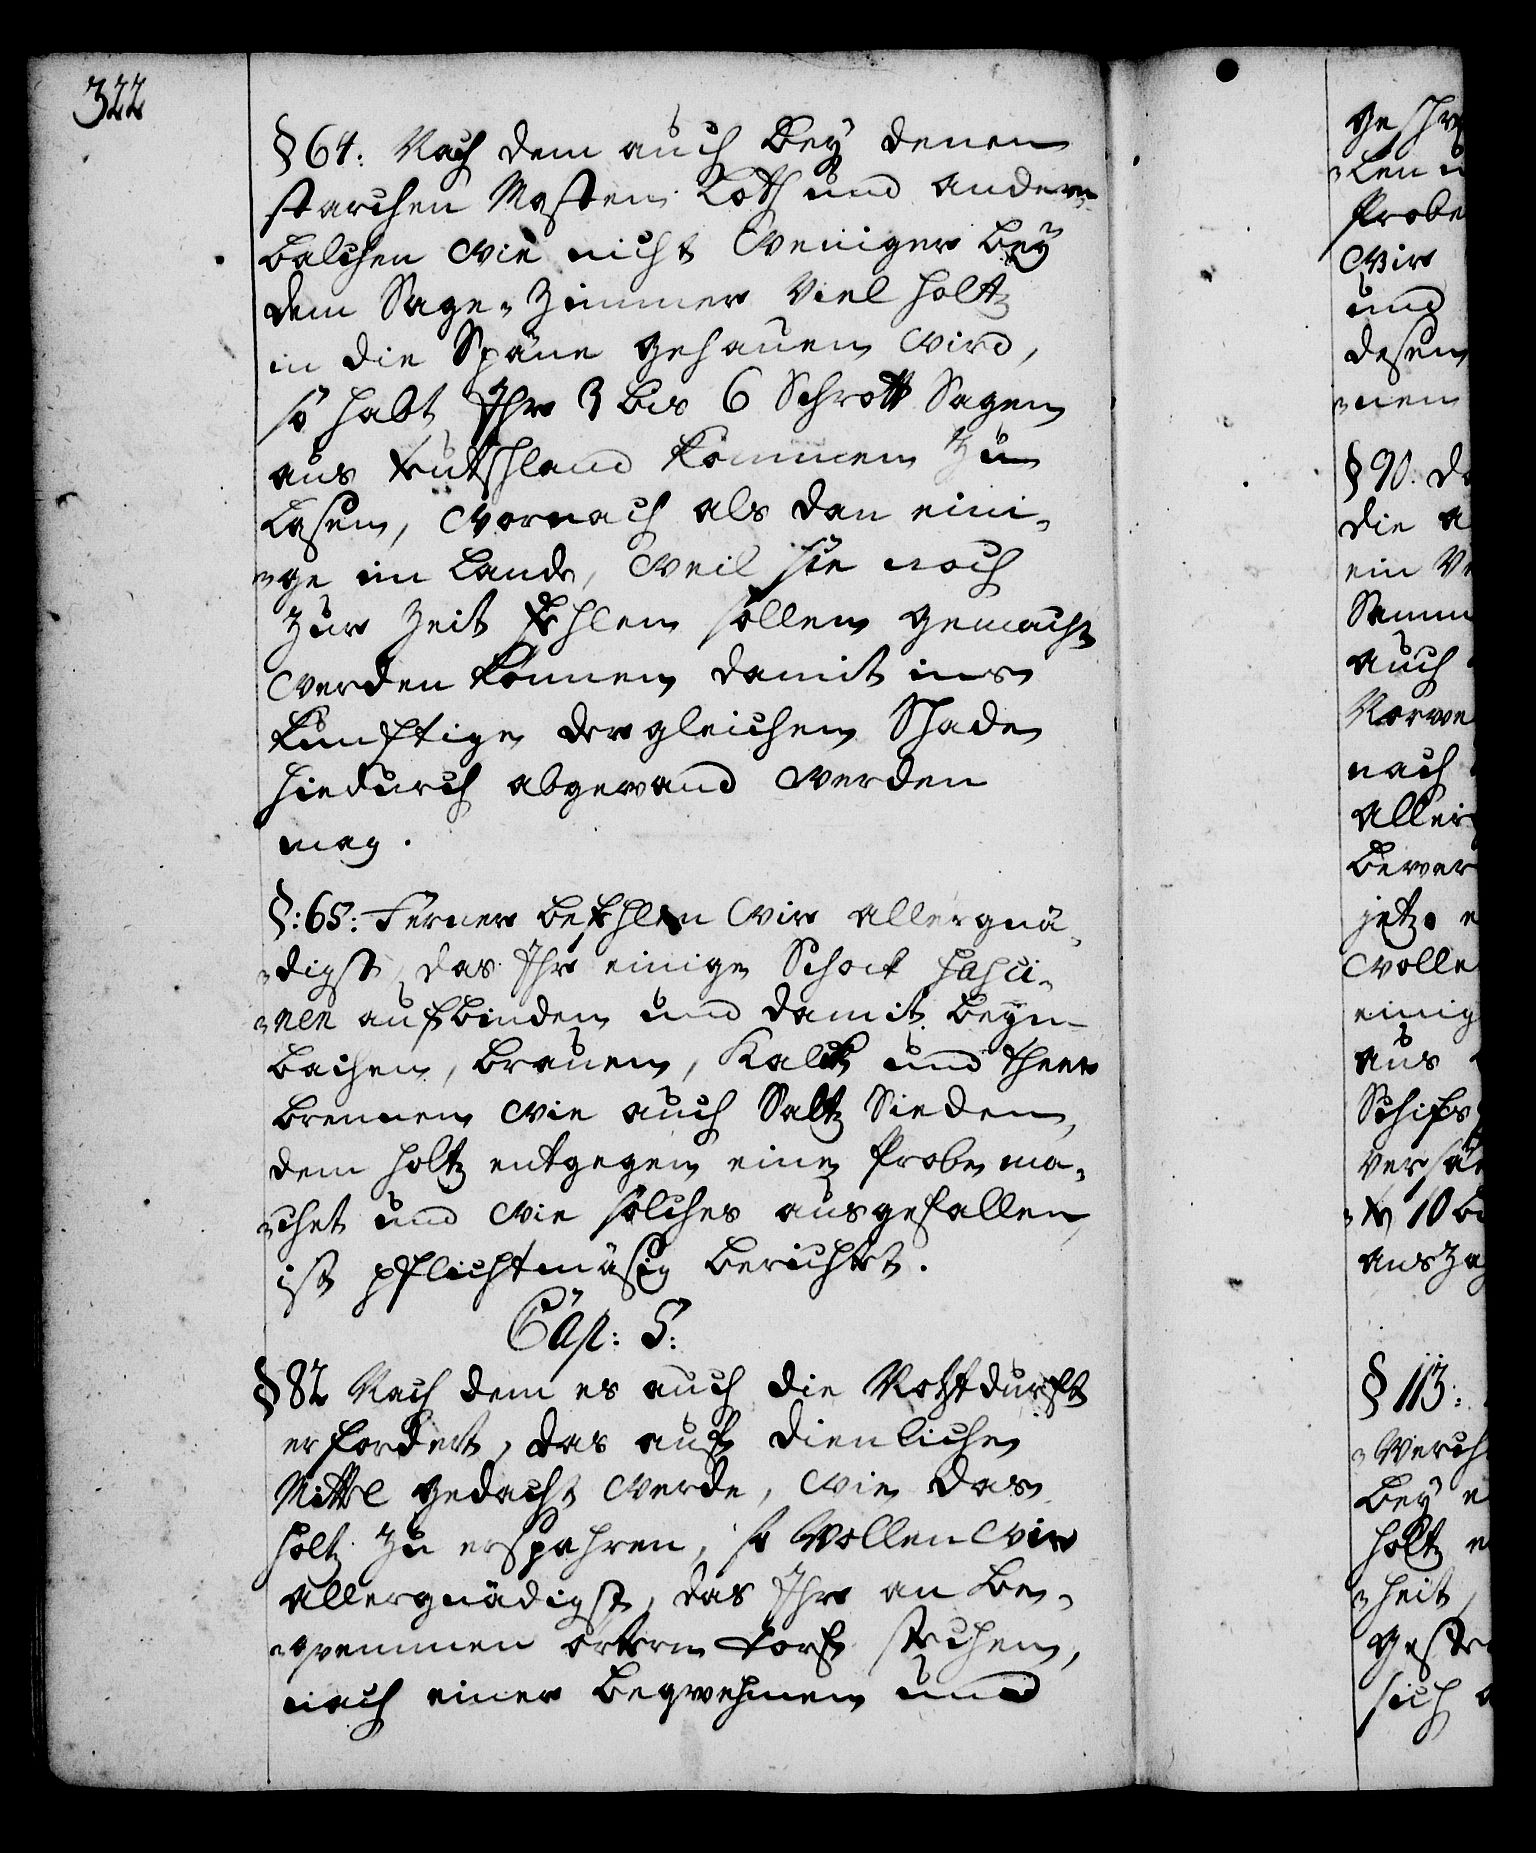 322
§ 64: Nach dem auch bey denen
starchen Masten Loth und andern
balchen wie nicht weniger bey
dem Sage-Zimmer viel holtz
in die Späne gehauen wird,
so habt Ihr 3 bis 6 Schrott Sagen
aus teutschland kommen zu
lasen, wornach als dan eini-
-ge im Lande, weil sie noch
zur Zeit fehlen sollen gemacht
werden können damit ins
künftige dergleichen Schade
hiedurch abgewand werden
mag.
§: 65: Ferner befehlen wir allergnä-
-digst, das Ihr einige Schock fasci-
-nen aufbinden und damit beym
bachen, brauen, Kalck und theer
brennen wie auch Saltz Sieden,
dem holtz entgegen eine Probe ma-
-chet und wie solches ausgefallen
ist pflichtmäsig berichtet.
Cap: 5:
§ 82 Nach dem es auch die Nothdurft
erfordert, das auf dienliche
Mittel gedacht werde, wie das
holtz zu erspahren, so wollen wir
allergnädigst, das Ihr an be-
-qvemmen örtern torf stechen,
nach einer beqwehmen und
ge Ihr
-len u
Probe
wir
und
desen
-nen
§ 90. da
die a
ein V
Samm
auch
Norwe
nach
Aller
bewer
jetzo e
wolle
einig
aus
Schifs
versä
-te 10 bi
aus Za
§ 113:
-werch
bey e
holtz e
-heit,
gestr
sich a